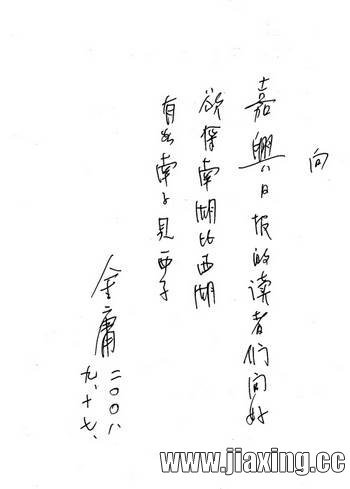 向
嘉興日报的读者们问好
欲探南湖比西湖
有如南子見西子
金庸
二〇〇八
九、十七、
www.jiaxing.cc